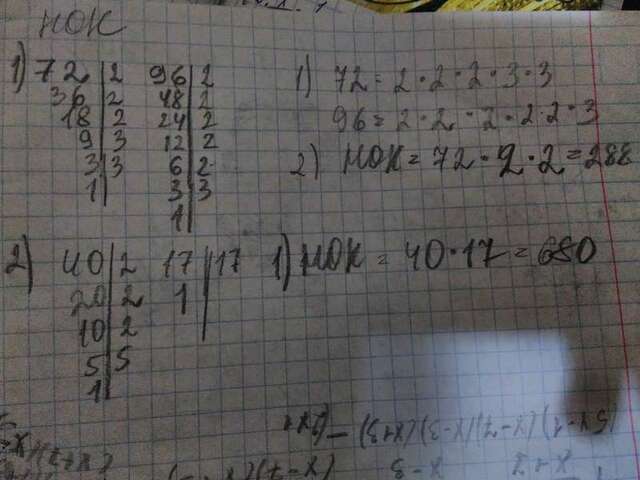 НОК
1) 72 | 2 96 | 2
36 | 2 48 | 2
18 | 2 24 | 2
9 | 3 12 | 2
3 | 3 6 | 2
1 | 3 | 3
1 |
1) 72 = 2 · 2 · 2 · 3 · 3
96 = 2 · 2 · 2 · 2 · 2 · 3
2) НОК = 72 · 2 · 2 = 288
2) 40 | 2 17 | 17
20 | 2 1 |
10 | 2
5 | 5
1 |
1) НОК = 40 · 17 = 680